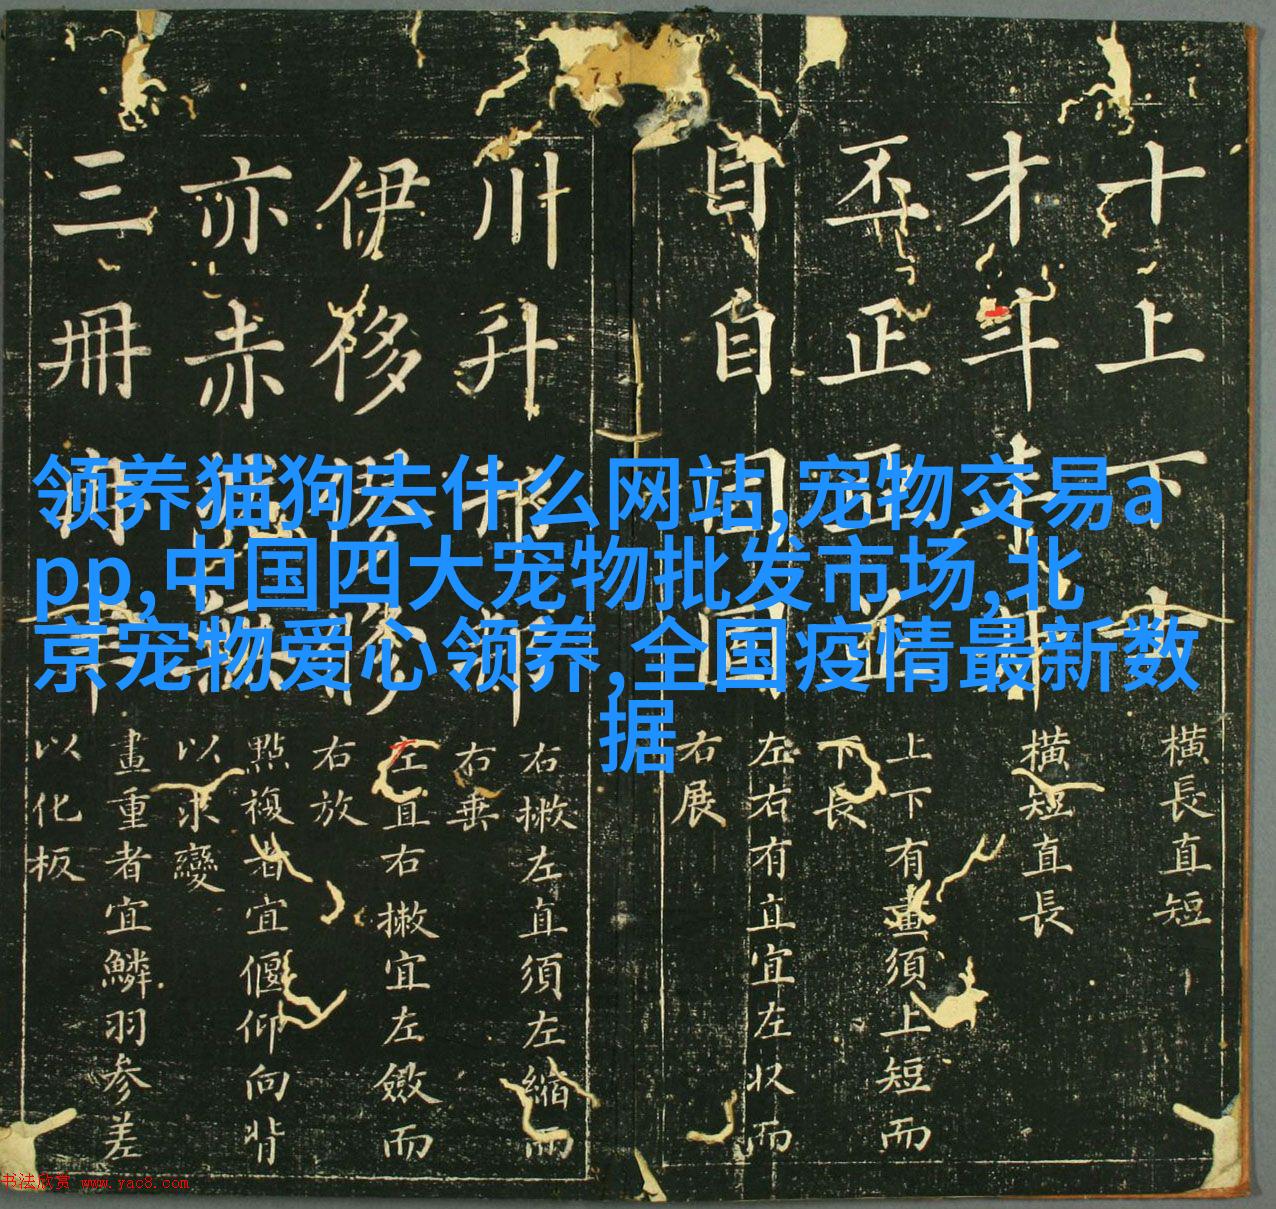 领养猫狗去什么网站,宠物交易a
pp,中国四大宠物批发市场,北
京宠物爱心领养,全国疫情最新数
据
十上下
橫長直短
才斗
橫短直長
丕正
上下有畫須上短而
下長
目自
左右有直宜左收而
右展
川升
右撇左直須左縮而
右垂
伊侈
左直右撇宜左斂而
右放
亦赤
點複者宜偃仰向背
以求變
三冊
畫重者宜鱗羽參差
以化板
书法欣赏 www.yac8.com